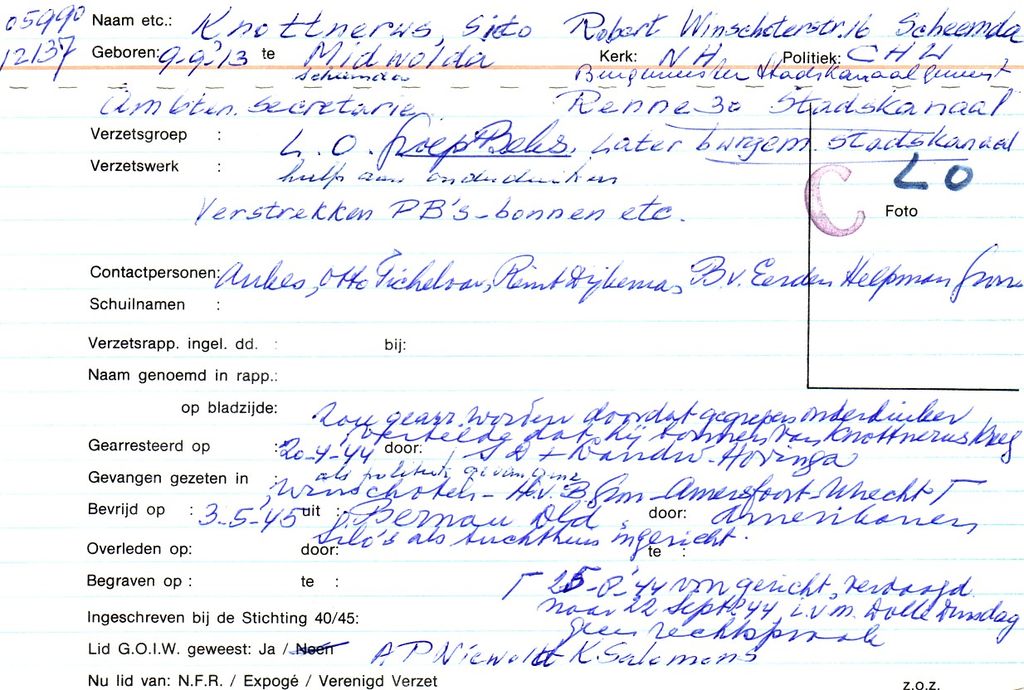 05990
12137
Naam etc.: Knottnerus, Sieto Robert Winschoterstr. 16 Scheemda
Geboren: 9-9-'13 te Midwolda Kerk: NH Politiek: CHU
Scheemda Burgemeester Stadskanaal geweest
Ambten. Secretarie Renne 30 Stadskanaal
Verzetsgroep : L.O. groep Bels. Later burgem. Stadskanaal
Verzetswerk : hulp aan onderduikers
LO
C
Foto
Verstrekken PB's - bonnen etc.
Contactpersonen: Aukes, Otto Tichelaar, Reint Dijkema, B. v. Eerden Helpman
Schuilnamen :
Verzetsrapp. ingel. dd. : bij:
Naam genoemd in rapp.:
op bladzijde: Zou gearr. worden doordat gegrepen onderduiker
vertelde dat hij bonnen van Knottnerus kreeg
Gearresteerd op : 20-4-44 door: SD + Hovinga
als politiek gevangene
Gevangen gezeten in : Winschoten - H.v.B. Grn - Amersfoort - Utrecht Γ
Bevrijd op : 3-5-'45 uit : Bernau Dld, door: Amerikanen
Silo's als tuchthuis ingericht.
Overleden op: door: te :
Begraven op : te : Γ 25-8-'44 v gericht, verdaagd
naar 22 Sept. '44 i.v.m. Dolle Dinsdag
geen rechtspraak
Ingeschreven bij de Stichting 40/45:
Lid G.O.I.W. geweest: Ja / Neen A P Niewoldt K Salomons
Nu lid van: N.F.R. / Expogé / Verenigd Verzet
z.o.z.